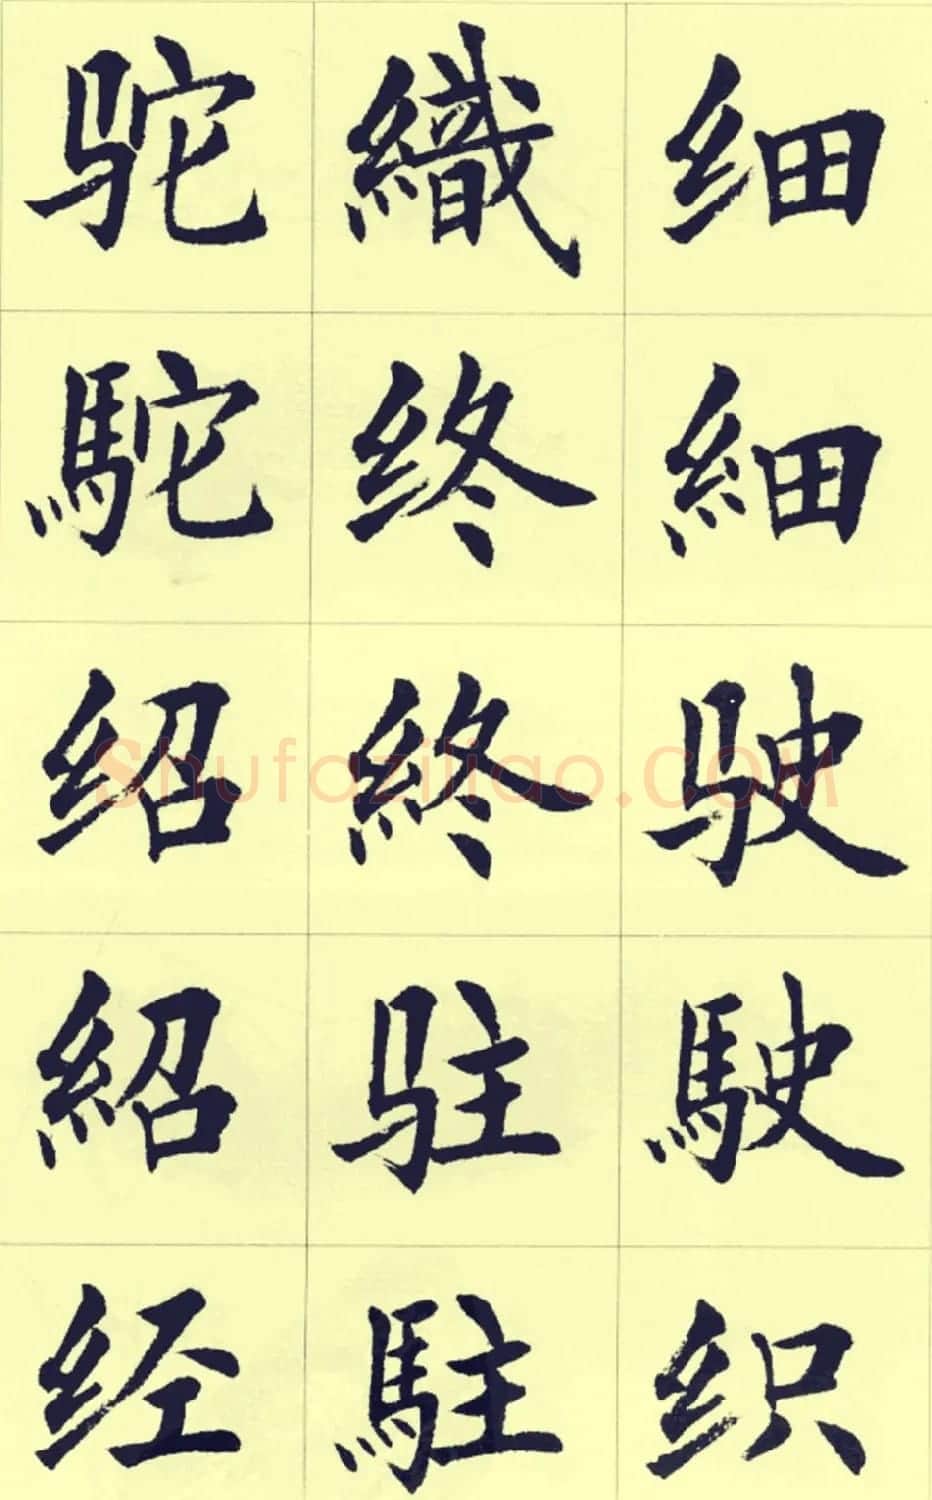 细細驶駛织
織终終驻駐
驼駝绍紹经
Shufaziliao.COM